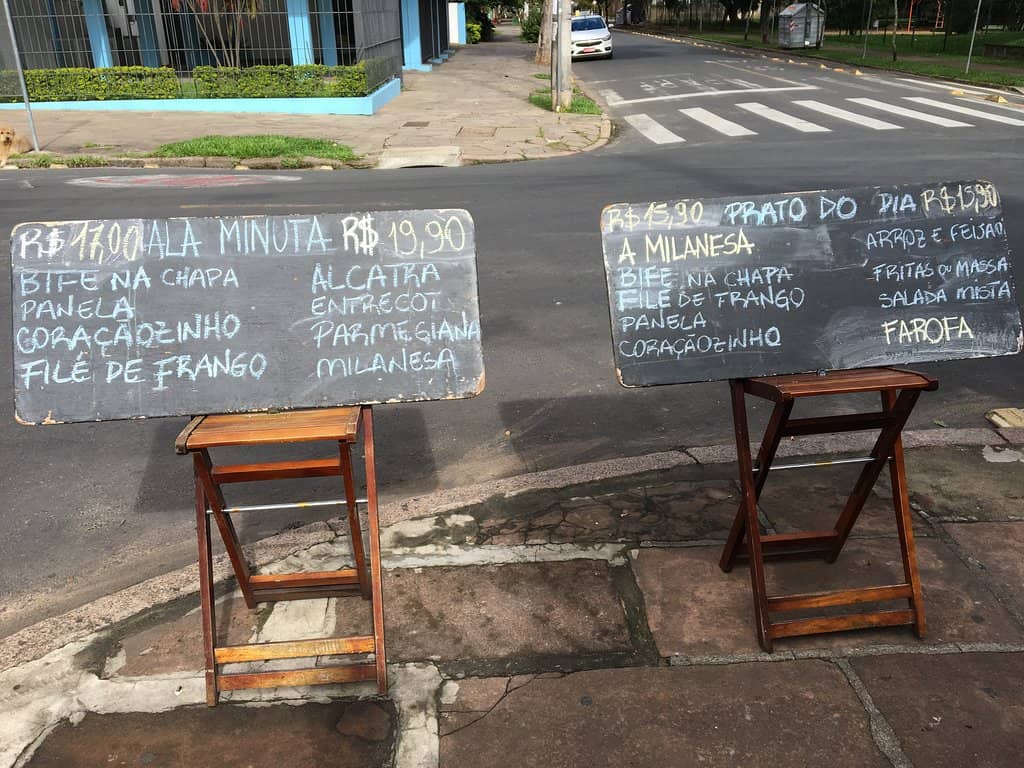 R$ 17,90 ALA MINUTA R$ 19,90
BIFE NA CHAPA ALCATRA
PANELA ENTRECOT
CORAÇÃOZINHO PARMEGIANA
FILÉ DE FRANGO MILANESA
R$ 15,90 PRATO DO DIA R$ 15,90
A MILANESA ARROZ E FEIJÃO
BIFE NA CHAPA FRITAS OU MASSA
FILÉ DE FRANGO SALADA MISTA
PANELA FAROFA
CORAÇÃOZINHO